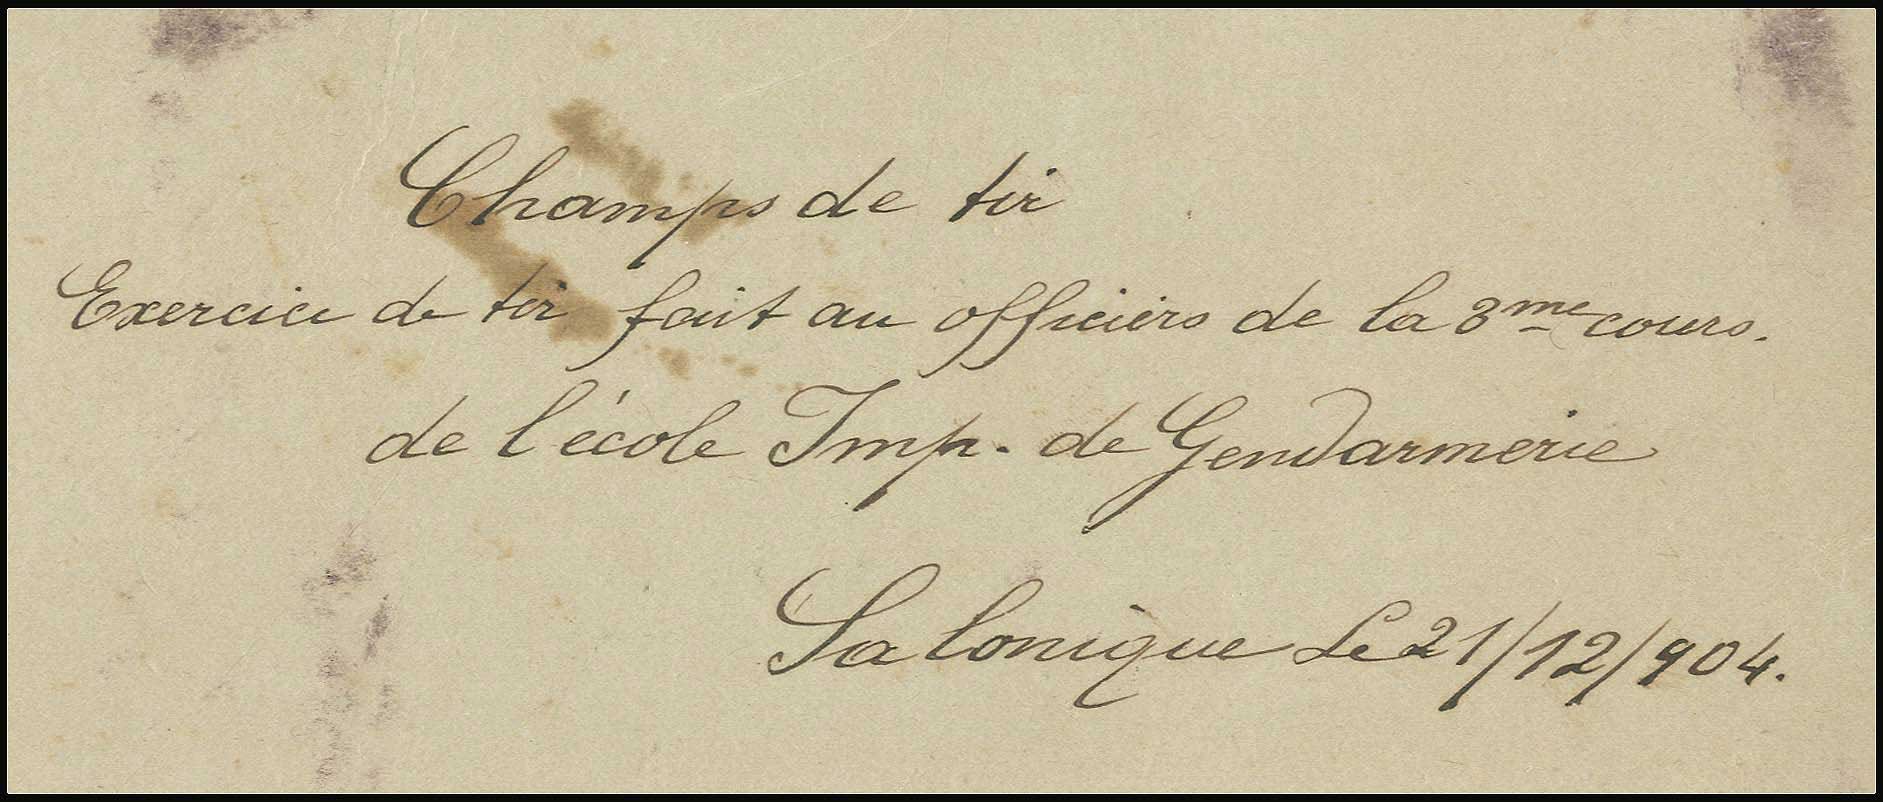 Champs de tir
Exercice de tir fait au officiers de la 3me cours.
de l'école Imp. de Gendarmerie
Salonique Le 21/12/904.